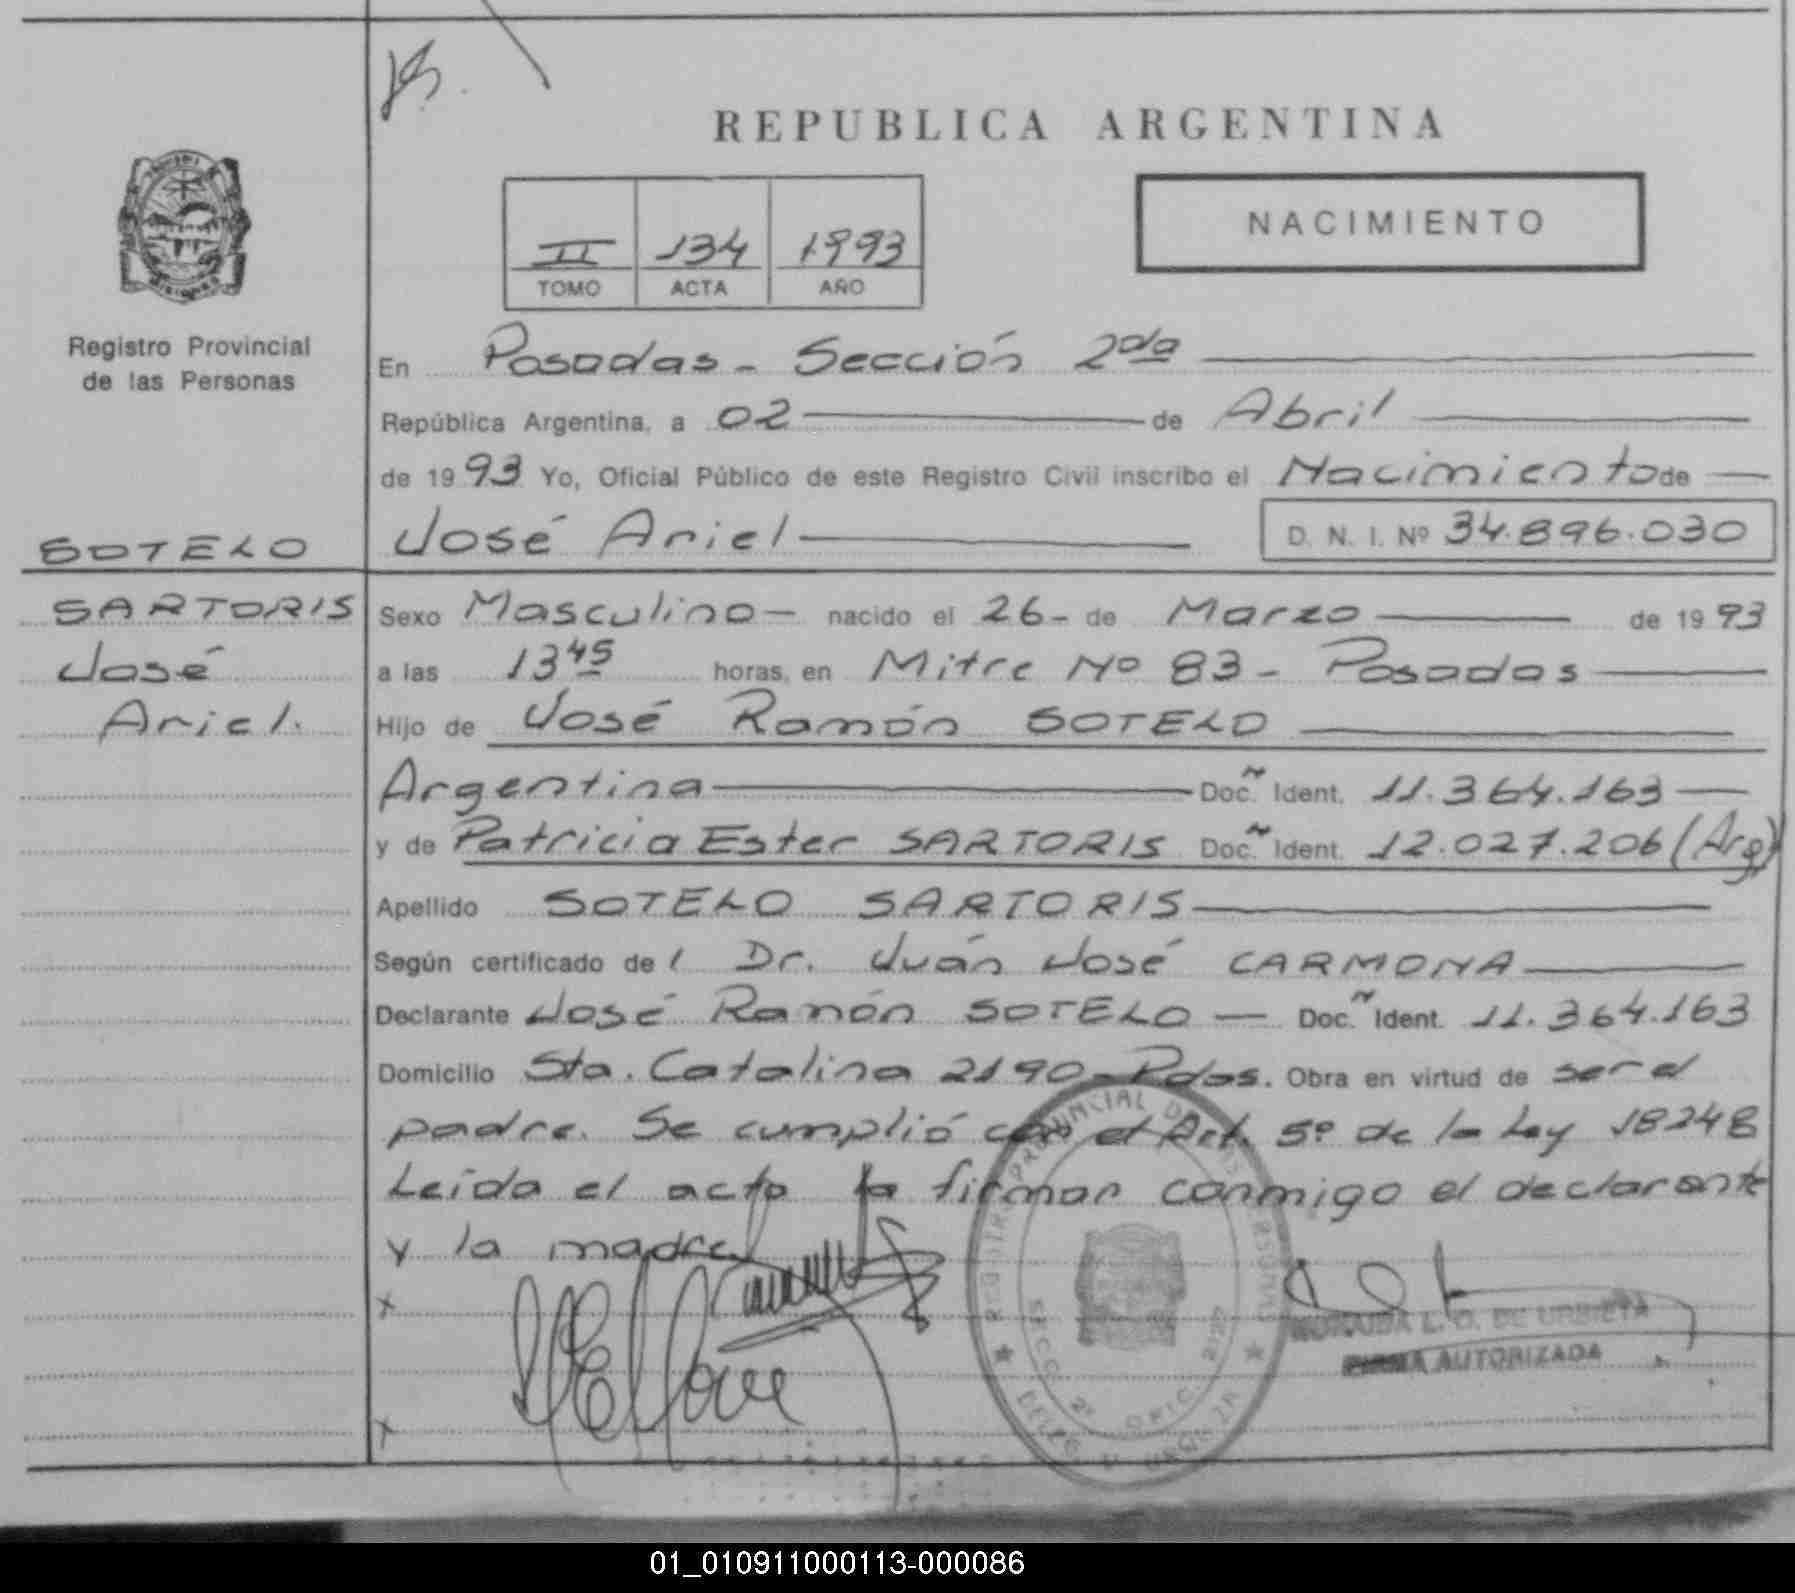 JS.
REPUBLICA ARGENTINA
II 134 1993
TOMO ACTA AÑO
NACIMIENTO
Registro Provincial
de las Personas
En Posadas - Sección 2da
República Argentina, a 02 de Abril
de 1993 Yo, Oficial Público de este Registro Civil inscribo el Nacimiento de
SOTELO
José Ariel D. N. I. Nº 34.896.030
SARTORIS
José
Ariel.
Sexo Masculino - nacido el 26 - de Marzo de 1993
a las 13 45 horas, en Mitre Nº 83 - Posadas
Hijo de José Ramón SOTELO
Argentina Doc. Ident. 11.364.163
y de Patricia Ester SARTORIS Doc. Ident. 12.027.206 (Arg)
Apellido SOTELO SARTORIS
Según certificado del Dr. Juán José CARMONA
Declarante José Ramón SOTELO - Doc. Ident. 11.364.163
Domicilio Sta. Catalina 2190 - Pdas. Obra en virtud de ser el
padre. Se cumplió con el Art. 5º de la Ley 18248
Leída el acta la firman conmigo el declarante
y la madre
x
x
REGISTRO PROVINCIAL DE LAS PERSONAS
SECC. 2ª
L. O. DE URBIETA
FIRMA AUTORIZADA
01_010911000113-000086